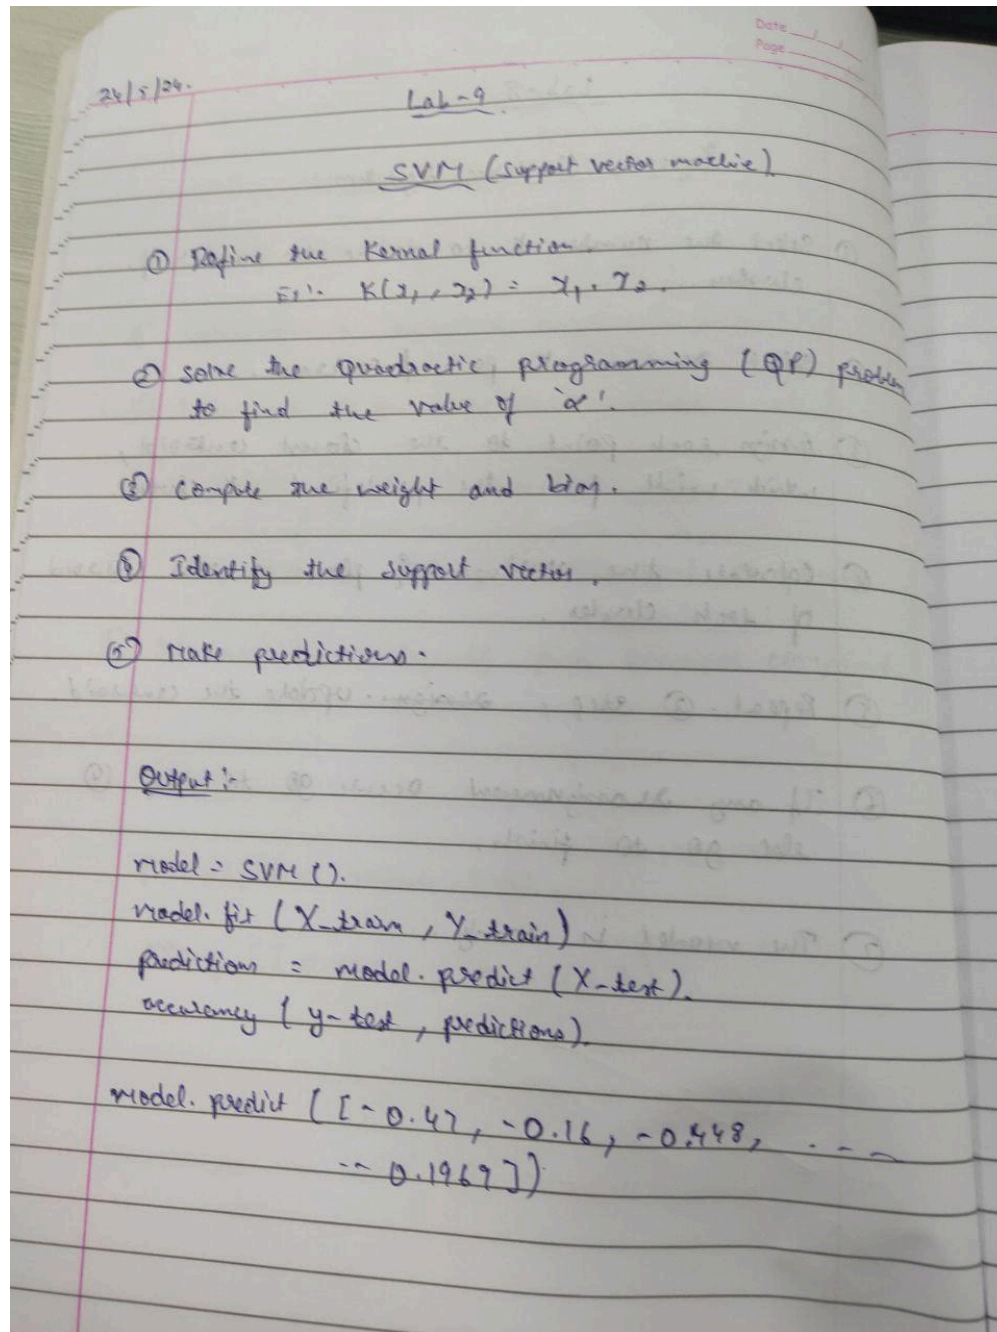 Date
Page
24/5/24.
Lab-9
SVM (Support vector machine)
① Define the Kernal function.
Ex:. K(x₁, x₂) = x₁. x₂.
② solve the Quadractic programming (QP) problem
to find the value of 'α'.
③ compute the weight and bias.
④ Identify the support vectors.
⑤ Make predictions.
Output:-
model = SVM ().
model. fit (X_train, Y_train)
predictions = model. predict (X_test).
accurancy (y_test, predictions).
model. predict ([-0.47, -0.16, -0.448, . - -
-- 0.1969])